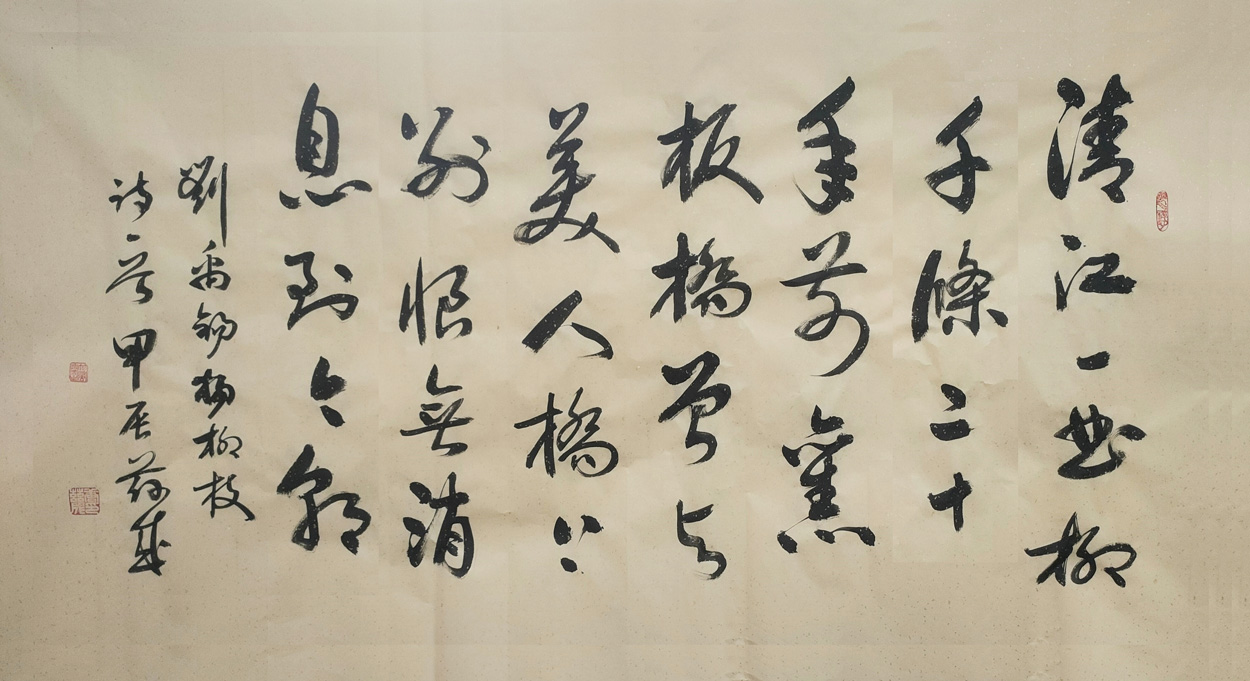 清江一曲柳
千條二十
年前舊
板橋曾与
美人橋上
别恨無消
息到今朝
劉禹錫楊柳枝
詩一首甲辰